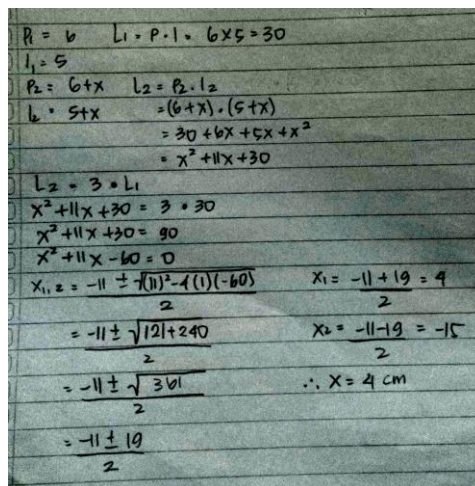 P₁ = 6 L₁ = P · l = 6x5 = 30
l₁ = 5
P₂ = 6+x L₂ = P₂ . l₂
l₂ = 5+x = (6+x) . (5+x)
= 30 + 6x + 5x + x²
= x² + 11x + 30
L₂ = 3 • L₁
x² + 11x + 30 = 3 • 30
x² + 11x + 30 = 90
x² + 11x - 60 = 0
x₁,₂ = -11 ± √(11)² - 4(1)(-60) / 2 x₁ = -11 + 19 / 2 = 4
= -11 ± √121 + 240 / 2 x₂ = -11 - 19 / 2 = -15
= -11 ± √361 / 2 ∴ x = 4 cm
= -11 ± 19 / 2